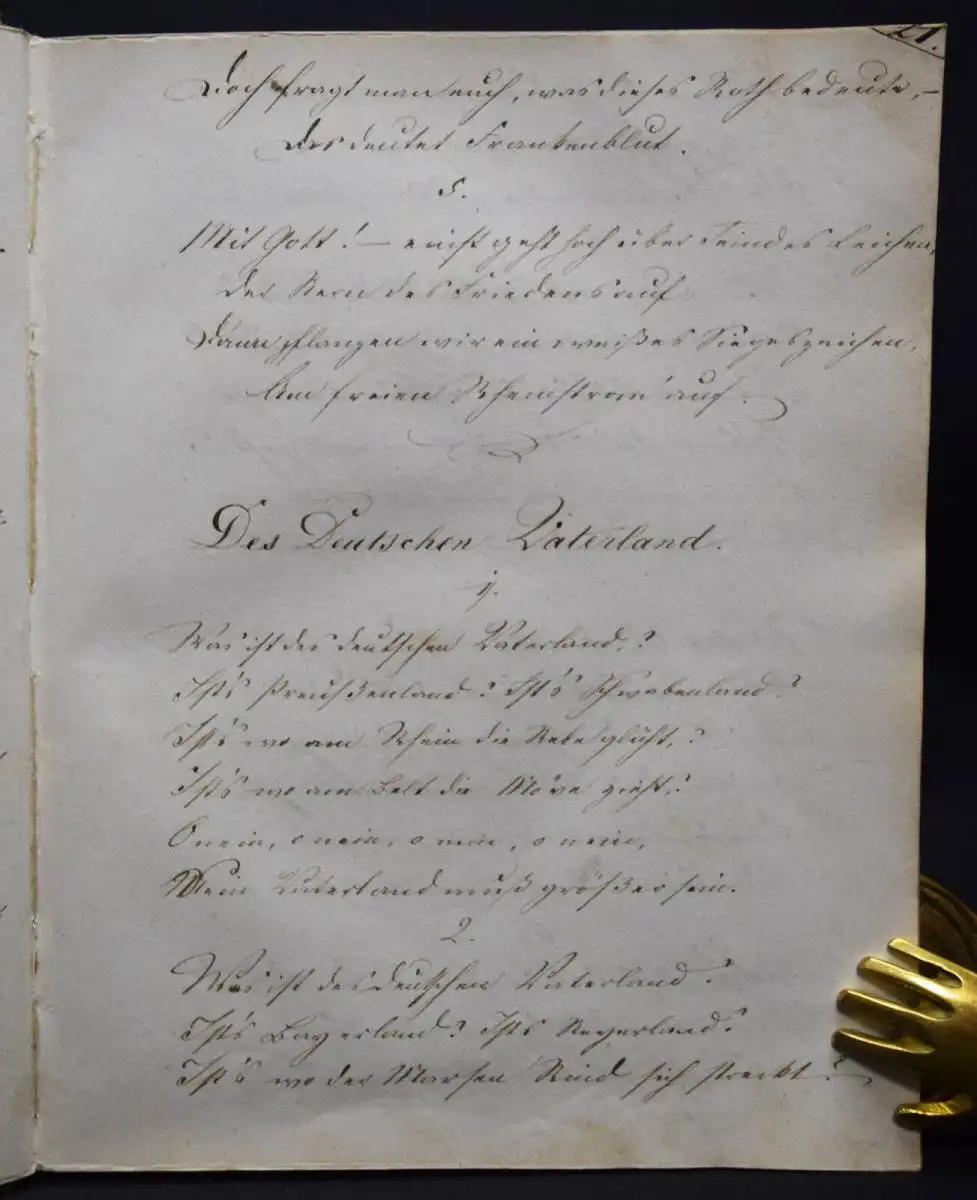 21.
Doch fragt man euch, was dieses Roth bedeute, –
Das deutet Frankenblut.
5.
Mit Gott! – einst geht hoch über Feindes Leichen,
Der Stern des Friedens auf
Dann pflanzen wir ein weißes Siegeszeichen,
Am freien Rheinstrom auf.
Des Deutschen Vaterland.
1.
Was ist des deutschen Vaterland,?
Ist's Preußenland? Ist's Schwabenland?
Ist's wo am Rhein die Rebe glüht,?
Ist's wo am Belt die Möve zieht,?
O nein, o nein, o nein, o nein,
Mein Vaterland muß größer sein.
2.
Was ist des deutschen Vaterland?
Ist's Bayerland? Ists Steyerland?
Ist's wo der Marsen Rind sich streckt?